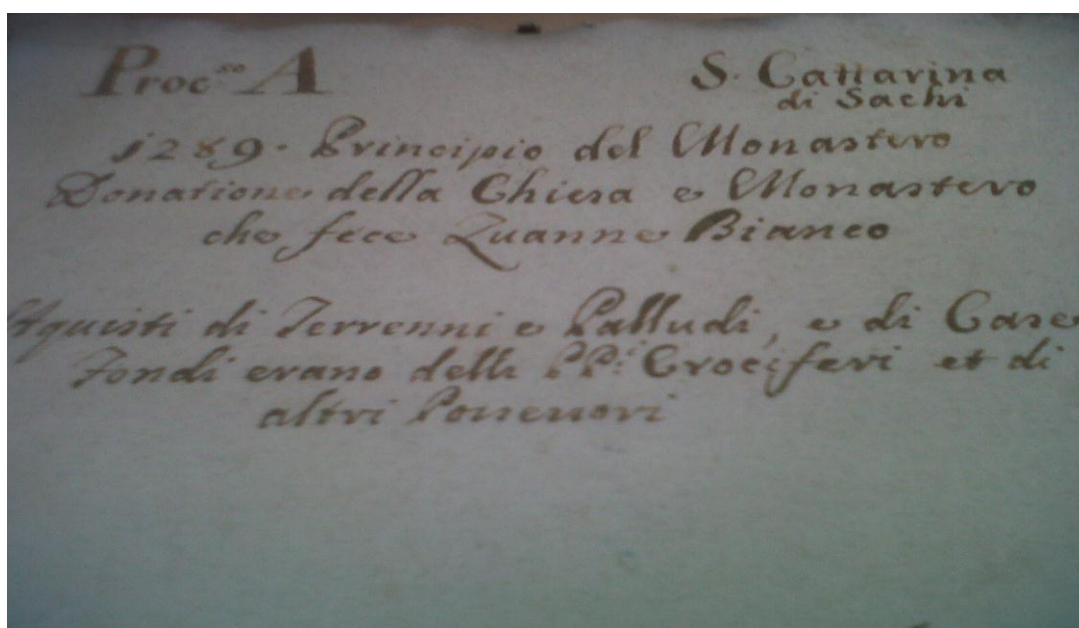 Proc.so A
S. Cattarina
di Sachi
1289. Principio del Monastero
Donatione della Chiesa e Monastero
che fece Zuanne Bianco
Aquisti di Terrenni e Palludi, e di Case
Fondi erano delli PP: Crociferi et di
altri Possessori